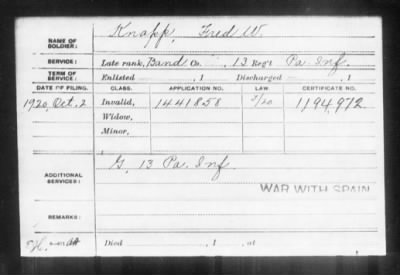 NAME OF SOLDIER: Knapp, Fred W.
SERVICE: Late rank, Band Co. , 13 Reg't Pa. Inf.
TERM OF SERVICE: Enlisted , 1 Discharged , 1
DATE OF FILING. CLASS. APPLICATION NO. LAW. CERTIFICATE NO.
1920, Oct. 2 Invalid, 1441858 5/20 1194,972
Widow,
Minor,
ADDITIONAL SERVICES: G, 13 Pa. Inf.
WAR WITH SPAIN
REMARKS:
Died , 1 , at